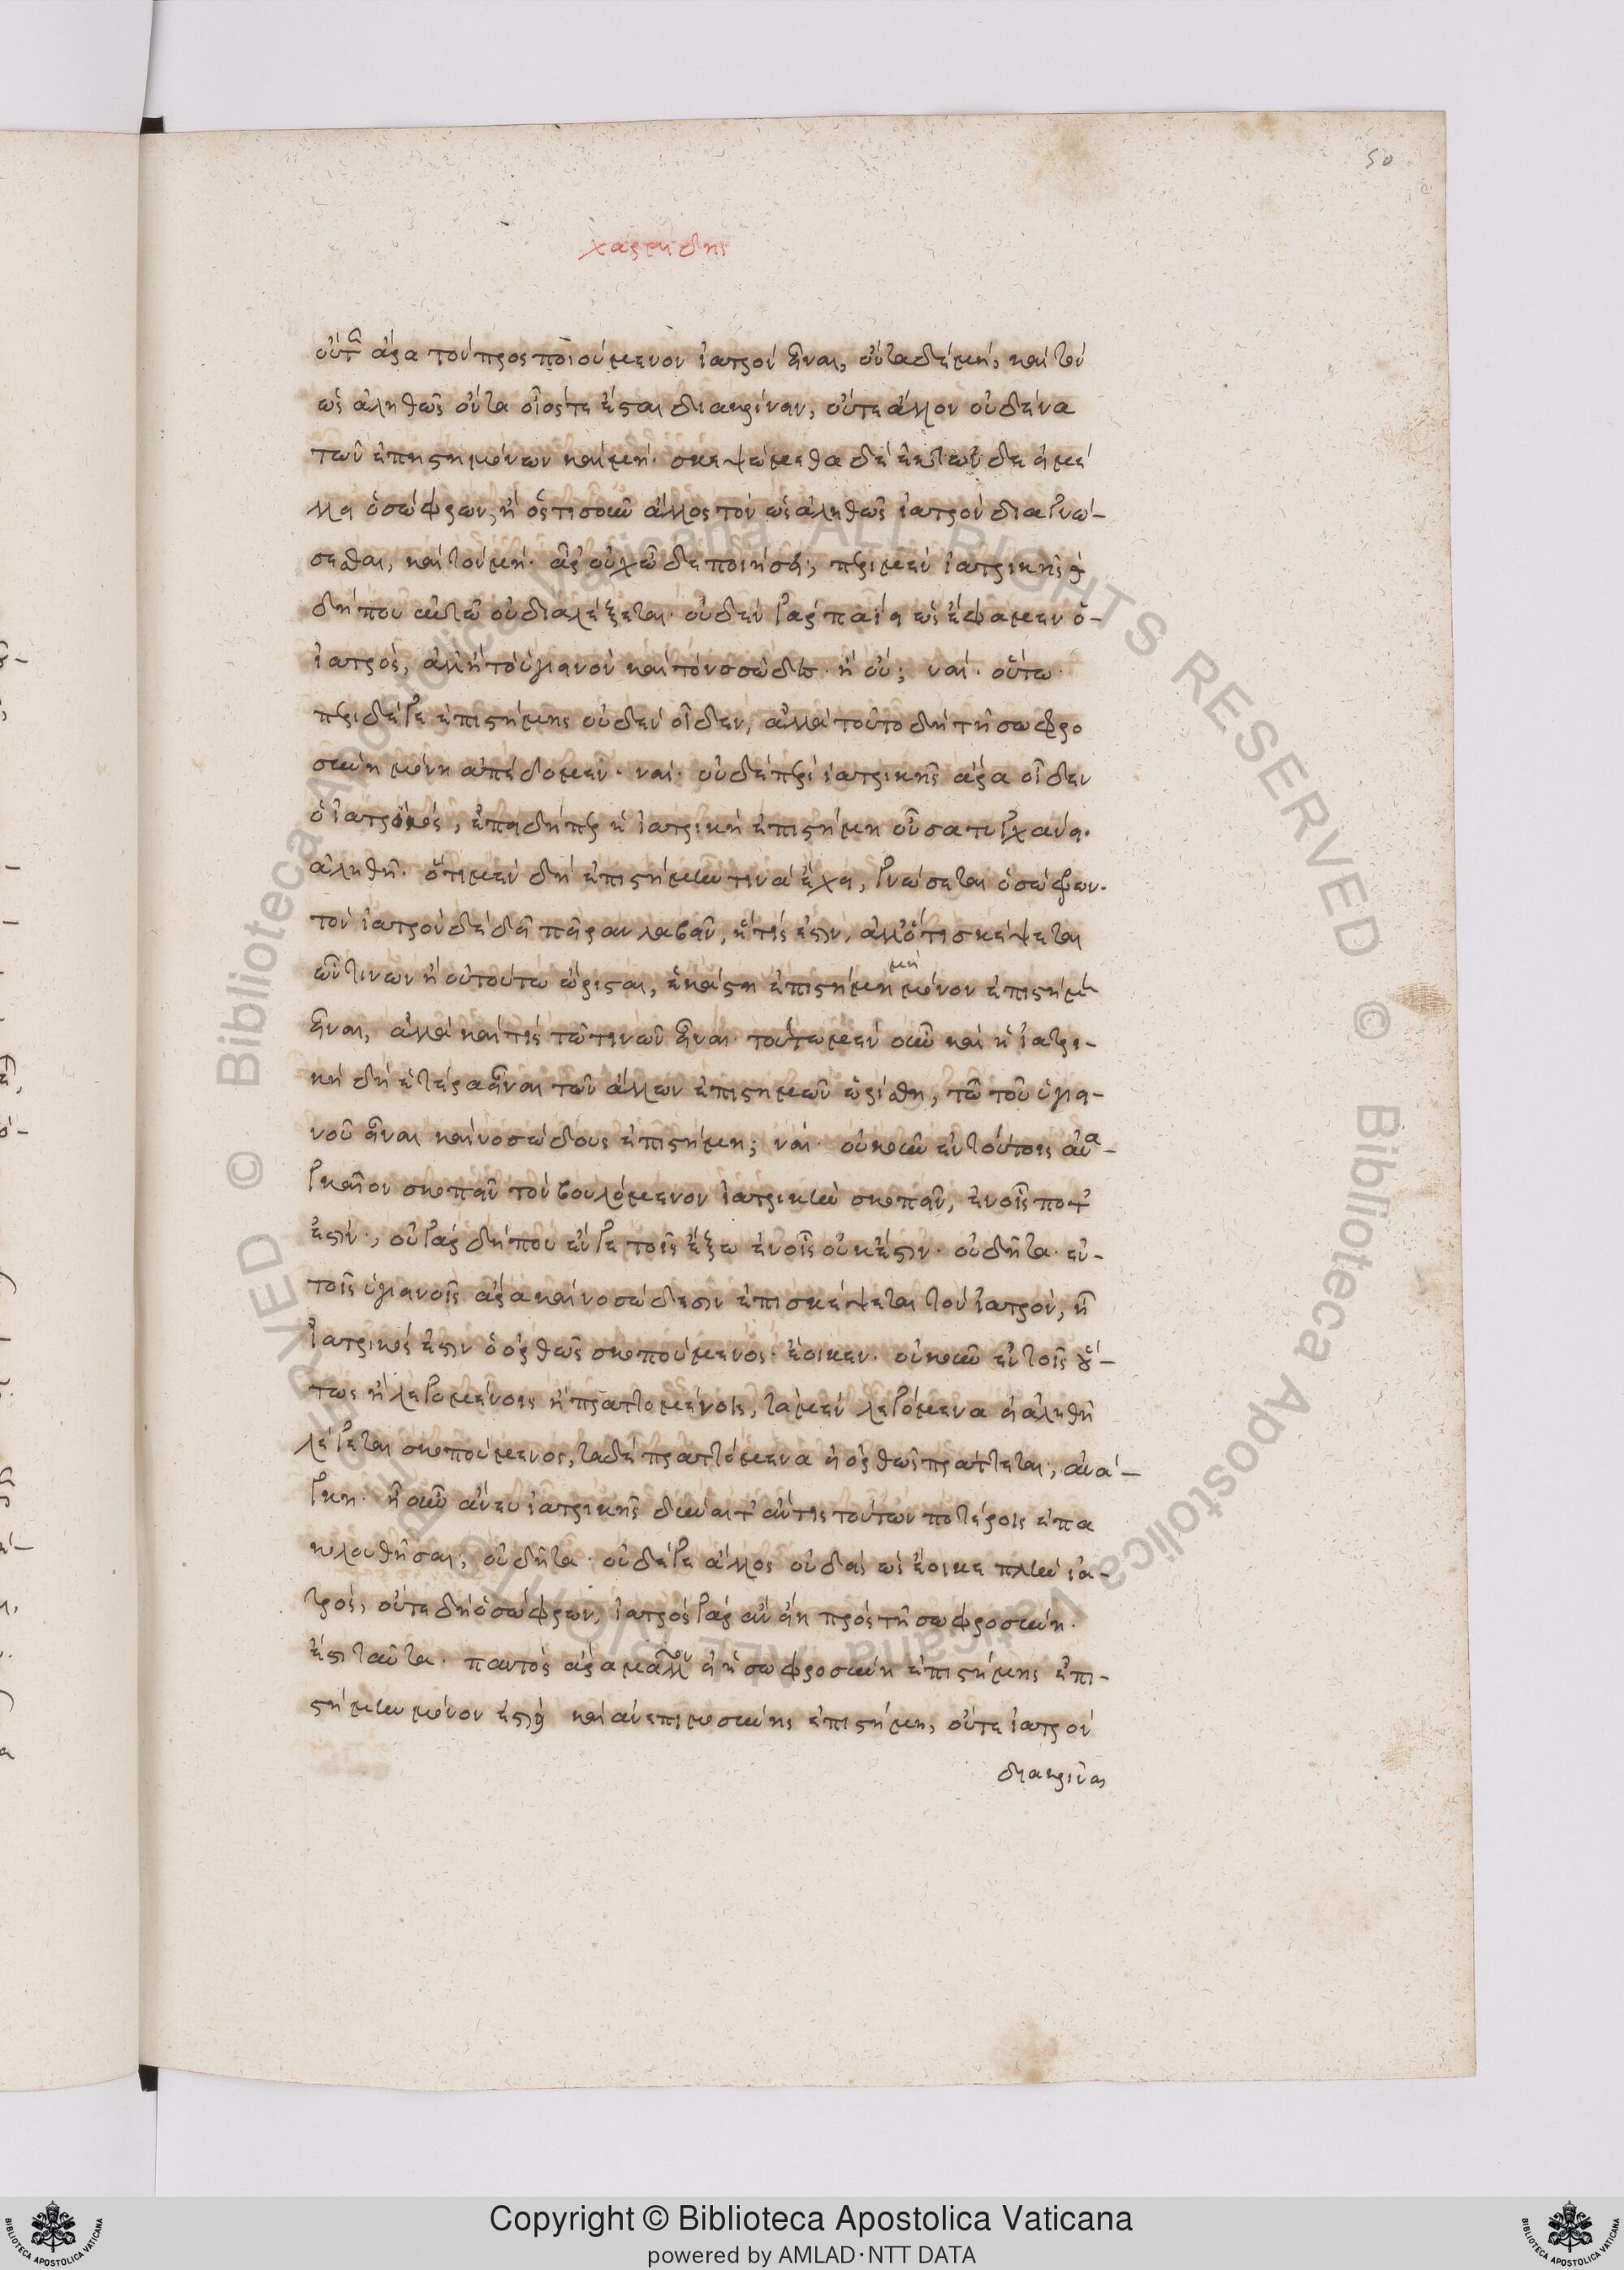 50
χαρμίδης
οὔτε ἄρα τὸν προσποιούμενον ἰατρὸν εἶναι, ὄντα δὲ μή, καὶ τὸν
ὡς ἀληθῶς ὄντα οἷός τε ἔσται διακρίνειν, οὔτε ἄλλον οὐδένα
τῶν ἐπιστημόνων καὶ μή. σκεψώμεθα δὲ ἐκ τῶνδε εἰ μέ
λλει ὁ σώφρων, ἢ ὁστισοῦν ἄλλος τὸν ὡς ἀληθῶς ἰατρὸν διαγνώ-
σεσθαι, καὶ τὸν μή. ἆρ' οὐχ ὧδε ποιήσει; περὶ μὲν ἰατρικῆς
δήπου αὐτῷ οὐ διαλέξεται. οὐδὲν γὰρ ἐπαΐει ὡς ἔφαμεν ὁ-
ἰατρός, ἀλλ' ἢ τὸ ὑγιεινὸν καὶ τὸ νοσῶδες. ἢ οὔ; ναί. οὕτω.
περὶ δέ γε ἐπιστήμης οὐδὲν οἶδεν, ἀλλὰ τοῦτο δὴ τῇ σωφρο
σύνῃ μόνῃ ἀπέδομεν. ναί. οὐδὲ περὶ ἰατρικῆς ἄρα οἶδεν
ὁ ἰατρικός, ἐπειδήπερ ἡ ἰατρικὴ ἐπιστήμη οὖσα τυγχάνει.
ἀληθῆ. ὅτι μὲν δὴ ἐπιστήμην τινὰ ἔχει, γνώσεται ὁ σώφρων.
τὸν ἰατρὸν δὲ δεῖ πεῖραν λαβεῖν, ἥτις ἐστίν, ἄλλό τι σκέψεται
ὧντινων ἢ οὐ τούτῳ ὥρισται, ἑκάστη ἐπιστήμη μὴ μόνον ἐπιστήμη
εἶναι, ἀλλὰ καὶ τίς τῷ τινῶν εἶναι. τούτῳ μὲν οὖν καὶ ἡ ἰατρι-
κὴ δὴ ἑτέρα εἶναι τῶν ἄλλων ἐπιστημῶν ὡρίσθη, τῷ τοῦ ὑγιει-
νοῦ εἶναι καὶ νοσώδους ἐπιστήμη; ναί. οὐκοῦν ἐν τούτοις ἀνα-
γκαῖον σκοπεῖν τὸν βουλόμενον ἰατρικὴν σκοπεῖν, ἐν οἷς ποτ'
ἐστίν; οὐ γὰρ δήπου ἔν γε τοῖς ἔξω ἐν οἷς οὐκ ἔστιν. οὐ δῆτα. ἐν-
τοῖς ὑγιεινοῖς ἄρα καὶ νοσώδεσιν ἐπισκέψεται τὸν ἰατρόν, ᾗ
ἰατρικός ἐστιν ὁ ὀρθῶς σκοπούμενος. ἔοικεν. οὐκοῦν ἐν τοῖς οὕ-
τως ἢ λεγομένοις ἢ πραττομένοις, τὰ μὲν λεγόμενα εἰ ἀληθῆ
λέγεται σκοπούμενος, τὰ δὲ πραττόμενα εἰ ὀρθῶς πράττεται; ἀνά-
γκη. ἦ οὖν ἄνευ ἰατρικῆς δύναιτ' ἄν τις τούτων ποτέροις ἐπα
κολουθῆσαι; οὐ δῆτα. οὐδέ γε ἄλλος οὐδεὶς ὡς ἔοικε πλὴν ἰα-
τρός, οὔτε δὴ ὁ σώφρων, ἰατρὸς γὰρ ἂν εἴη πρὸς τῇ σωφροσύνῃ.
ἔστι ταῦτα. παντὸς ἄρα μᾶλλον εἰ ἡ σωφροσύνη ἐπιστήμης ἐπι-
στήμη μόνον ἐστὶ καὶ ἀνεπιστημοσύνης ἐπιστήμη, οὔτε ἰατρὸν
διακρῖναι
Copyright © Biblioteca Apostolica Vaticana
powered by AMLAD·NTT DATA